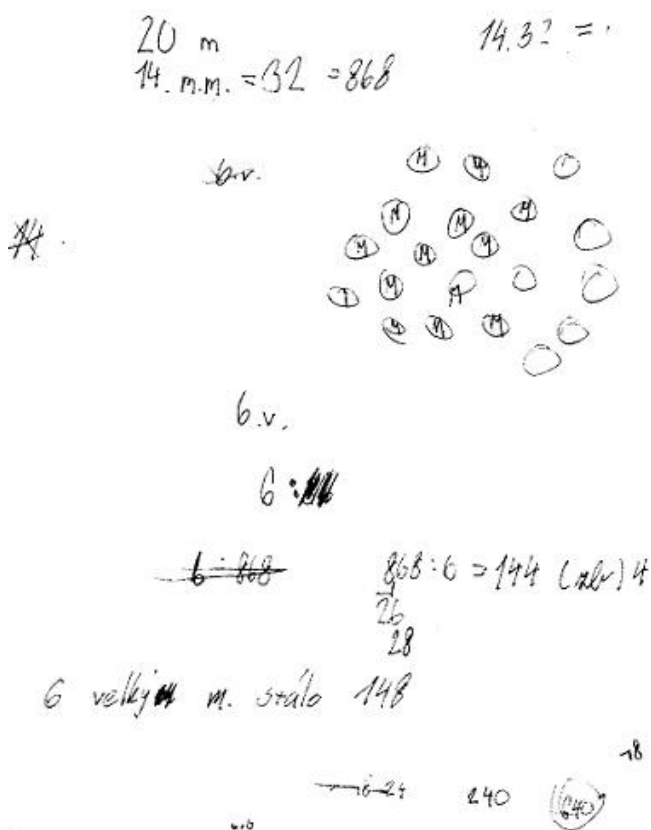 20 m 14.32 =
14. m.m. = 32 = 868
b.v.
14.
M M
M M M
M M M
M M
M M
6.v.
6 :
6 : 868 868 : 6 = 144 (zb) 4
26
28
6 velký m. stálo 148
18
24 240 640